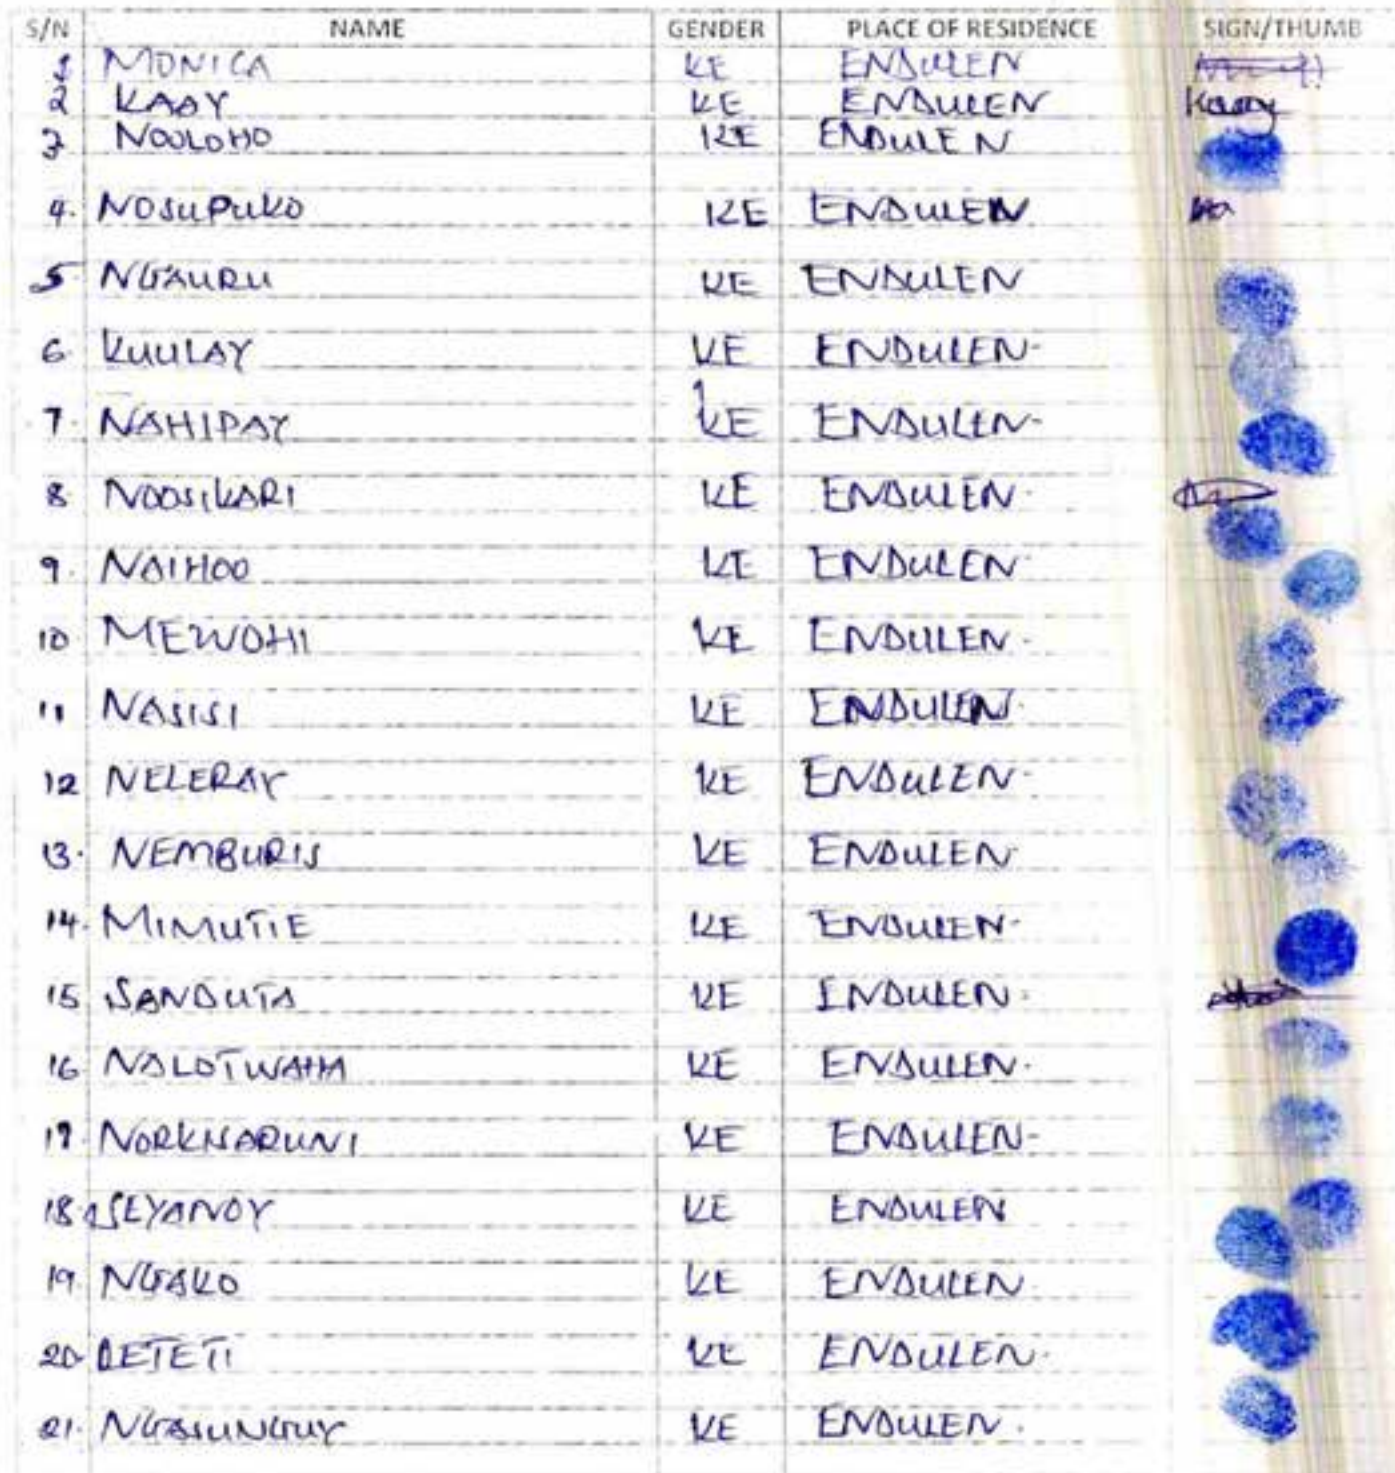 S/N NAME GENDER PLACE OF RESIDENCE SIGN/THUMB
1 MONICA KE ENDULEN
2 KAAY KE ENDULEN Kaay
3 NOOLOHO KE ENDULEN
4. NOSUPUKO KE ENDULEN
5. NGAURU KE ENDULEN
6. KUULAY KE ENDULEN-
7. NAHIPAY KE ENDULEN-
8 NOOSIKARI KE ENDULEN.
9. NAIHOO KE ENDULEN
10 MEWOHI KE ENDULEN.
11 NASISI KE ENDULEN.
12 NELERAY KE ENDULEN.
13. NEMBURIS KE ENDULEN
14. MIMUTIE KE ENDULEN-
15 SANDUTA KE ENDULEN.
16 NALOTWAHA KE ENDULEN.
17. KE ENDULEN-
18. SEYANOY KE ENDULEN
19. NGAKO KE ENDULEN
20. LETETI KE ENDULEN.
21. NGASUNGUY KE ENDULEN.